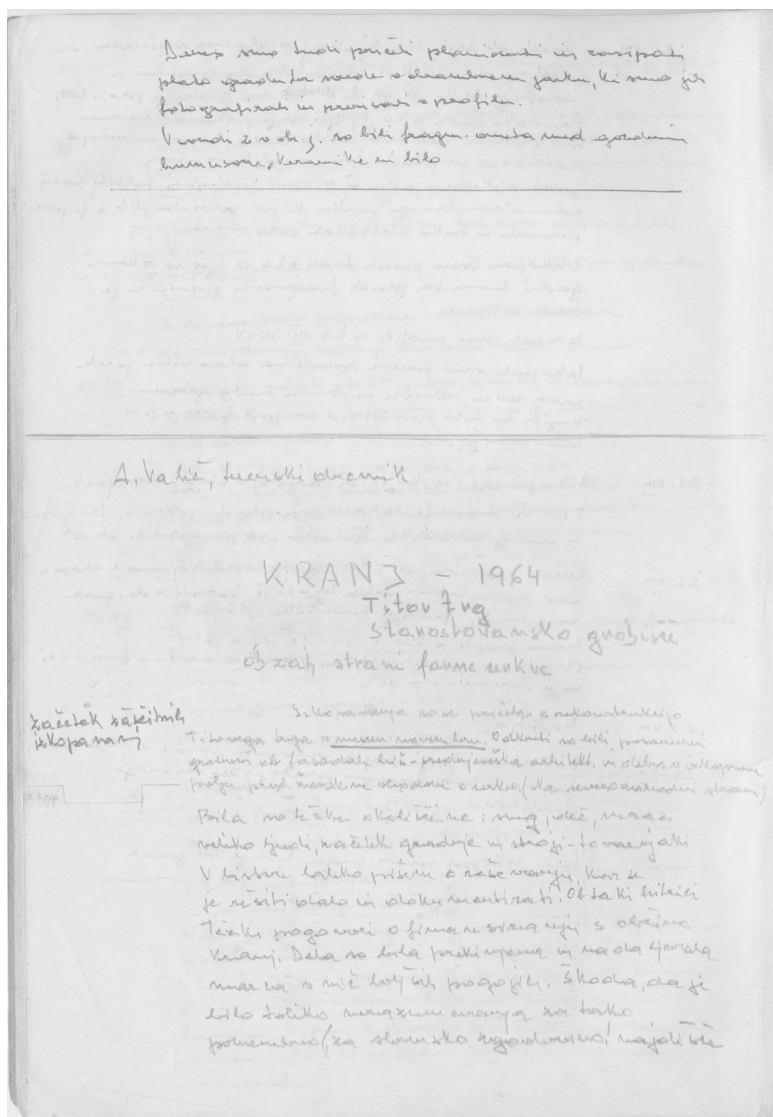 Danes smo tudi pričeli planirati in zasipati
plato gradu ter sonde v obrambnem jarku, ki smo jih
fotografirali in premerili v profilu.
V sondi 2 v ob. j. so bili fragm. ometa med gozdnim
humusom, keramike ni bilo
A. Valič, terenski dnevnik
KRANJ - 1964
Titov trg
staroslovansko grobišče
ob zah. strani farne cerkve
začetek zaščitnih
izkopavanj
Izkopavanja so se pričela z rekonstrukcijo
Titovega trga v mesecu novembru. Odkriti so bili
grobovi ob fasadah hiš - srednjeveška arhitekt. in
polju pred vhodom v cerkev. (Na severozahodni strani)
Bile so težke okoliščine: sneg, dež, mraz
veliko ljudi, začetek gradnje in stroji - tovornjaki
V bistvu lahko pišem o reševanju, kar se
je rešiti dalo in dokumentirati. Ob taki hitrici
težki pogovori o financiranju z občino
Kranj. Dela so bila prekinjena in nadaljevala
marca v nič boljših pogojih. Škoda, da je
bilo toliko nerazumevanja za tako
pomembno (za slovensko zgodovino) najdišče